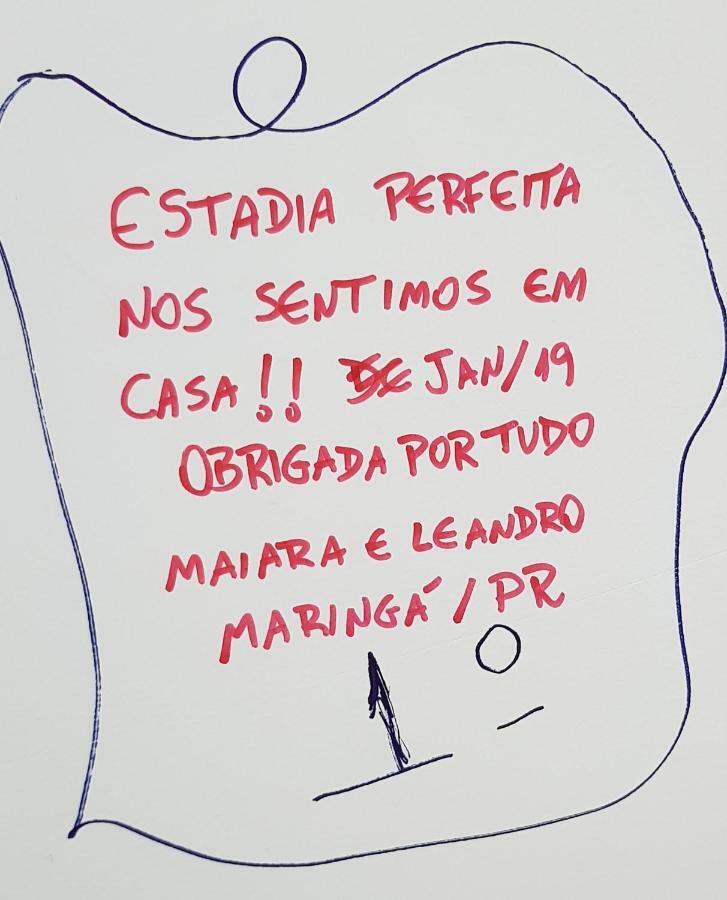 ESTADIA PERFEITA
NOS SENTIMOS EM
CASA!! JAN/19
OBRIGADA POR TUDO
MAIARA E LEANDRO
MARINGÁ / PR
1º